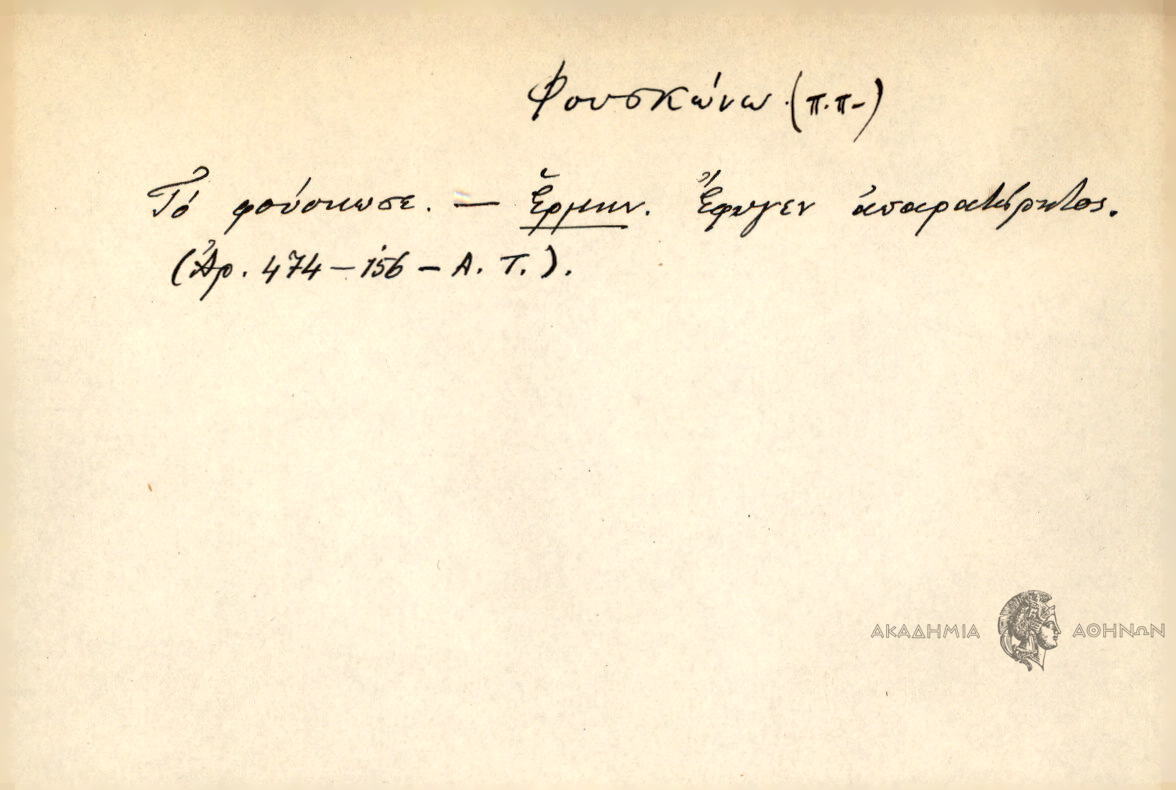 Φουσκώνω (π.π-)
Τό φούσκωσε. — Ἑρμην. Ἔφυγεν ἀπαρατήρητος.
(Ἀρ. 474-156-Α. Τ.).
ΑΚΑΔΗΜΙΑ ΑΘΗΝΩΝ